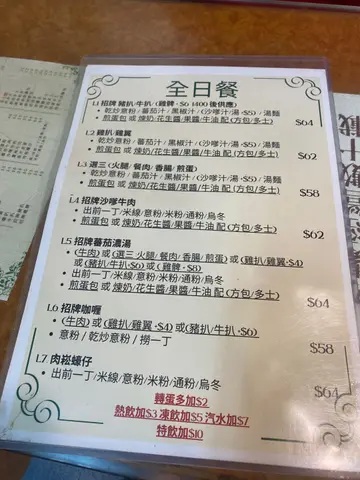 全日餐
L1 招牌 豬扒/牛扒/ (雞髀 +$6 1400 後供應)
• 乾炒意粉/ 蕃茄汁/ 黑椒汁/ (沙嗲汁/湯 +$5) / 湯麵
• 煎蛋包 或 煉奶/花生醬/果醬/牛油 配 (方包/多士)
$64
L2 雞扒/雞翼
乾炒意粉/ 蕃茄汁/ 黑椒汁/ (沙嗲汁/湯 +$5) / 湯麵
• 煎蛋包 或 煉奶/花生醬/果醬/牛油 配 (方包/多士)
$62
L3 選三 (火腿/ 餐肉/ 香腸/ 煎蛋)
乾炒意粉/ 蕃茄汁/ 黑椒汁/ (沙嗲汁/湯 +$5) / 湯麵
• 煎蛋包 或 煉奶/花生醬/果醬/牛油 配 (方包/多士)
$58
L4 招牌沙嗲牛肉
• 出前一丁/米線/意粉/米粉/通粉/烏冬
• 煎蛋包 或 煉奶/花生醬/果醬/牛油 配 (方包/多士)
$62
L5 招牌蕃茄濃湯
• (牛肉) 或 (選三 火腿/ 餐肉/ 香腸/ 煎蛋) 或 (雞扒/雞翼+$4)
或 (豬扒/牛扒+$6) 或 ( 雞髀 +$8)
• 出前一丁/米線/意粉/米粉/通粉/烏冬
• 煎蛋包 或 煉奶/花生醬/果醬/牛油 配 (方包/多士)
$64
L6 招牌咖喱
• (牛肉) 或 (雞扒/雞翼 +$4) 或(豬扒/牛扒 +$6)
• 意粉 / 乾炒意粉 / 撈一丁
$58
L7 肉崧蠔仔
• 出前一丁/米線/意粉/米粉/通粉/烏冬
$64
轉蛋多加$2
熱飲加$3 凍飲加$5 汽水加$7
特飲加$10